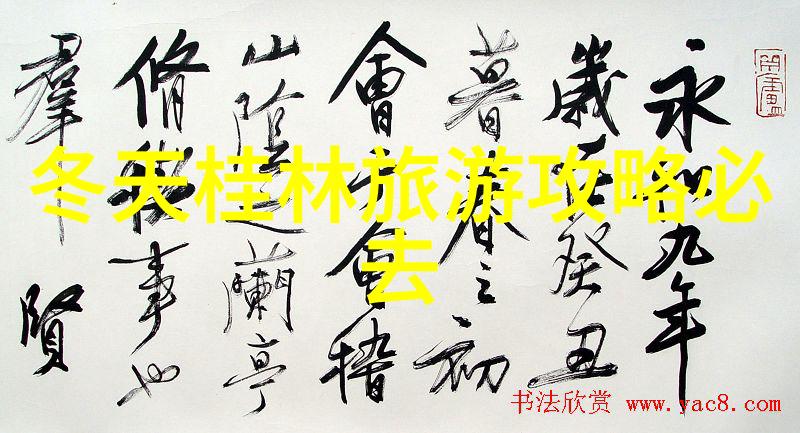 永和九年
歲在癸丑
暮春之初
會于會稽
山陰之蘭亭
脩禊事也
羣賢
冬天桂林旅游攻略必
去
书法欣赏 www.yac8.com